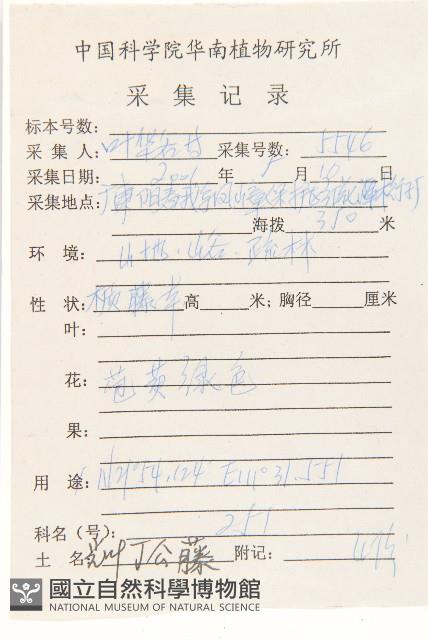 中国科学院华南植物研究所
采集记录
标本号数:
采集人: 叶华谷 采集号数: 5546
采集日期: 2001 年 5 月 10 日
采集地点: 广东阳春
海拔 350 米
环境: 山地·山谷·疏林
性状: 藤 高 米; 胸径 厘米
叶:
花: 苞黄绿色
果:
用途: N21°54.124′ E111°31.551
科名(号): 251
土名: 丁公藤 附记:
國立自然科學博物館
NATIONAL MUSEUM OF NATURAL SCIENCE